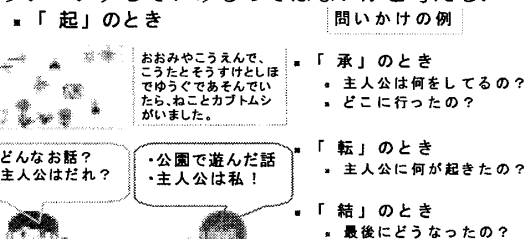 ▪「 起」のとき
問いかけの例
おおみやこうえんで、
こうたとそうすけとしほ
でゆうぐであそんでい
たら、ねことカブトムシ
がいました。
どんなお話？
主人公はだれ？
・公園で遊んだ話
・主人公は私！
▪「 承」のとき
▪ 主人公は何をしてるの？
▪ どこに行ったの？
▪「 転」のとき
▪ 主人公に何が起きたの？
▪「 結」のとき
▪ 最後にどうなったの？